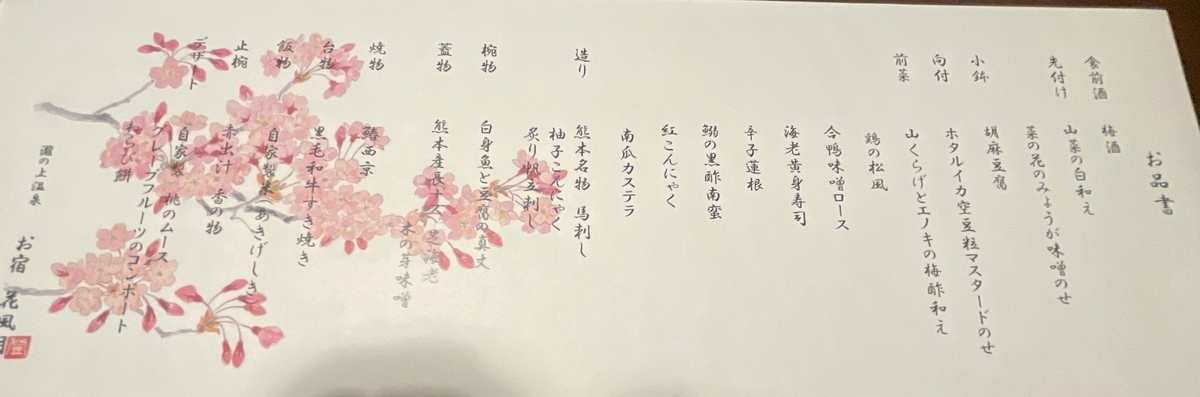 お品書
食前酒 梅酒
先付け 山菜の白和え
菜の花のみょうが味噌のせ
小鉢 胡麻豆腐
向付 ホタルイカ空豆粒マスタードのせ
前菜 山くらげとエノキの梅酢和え
鶏の松風
合鴨味噌ロース
海老黄身寿司
辛子蓮根
鰯の黒酢南蛮
紅こんにゃく
南瓜カステラ
造り 熊本名物 馬刺し
柚子こんにゃく
炙り帆立刺し
椀物 白身魚と豆腐の真丈
蓋物 熊本産長なす 芝海老
木の芽味噌
焼物 鰆西京
台物 黒毛和牛すき焼き
飯物 自家製米(あきげしき)
止椀 赤出汁 香の物
デザート 自家製 桃のムース
グレープフルーツのコンポート
わらび餅
瀧の上温泉
お宿 花風月